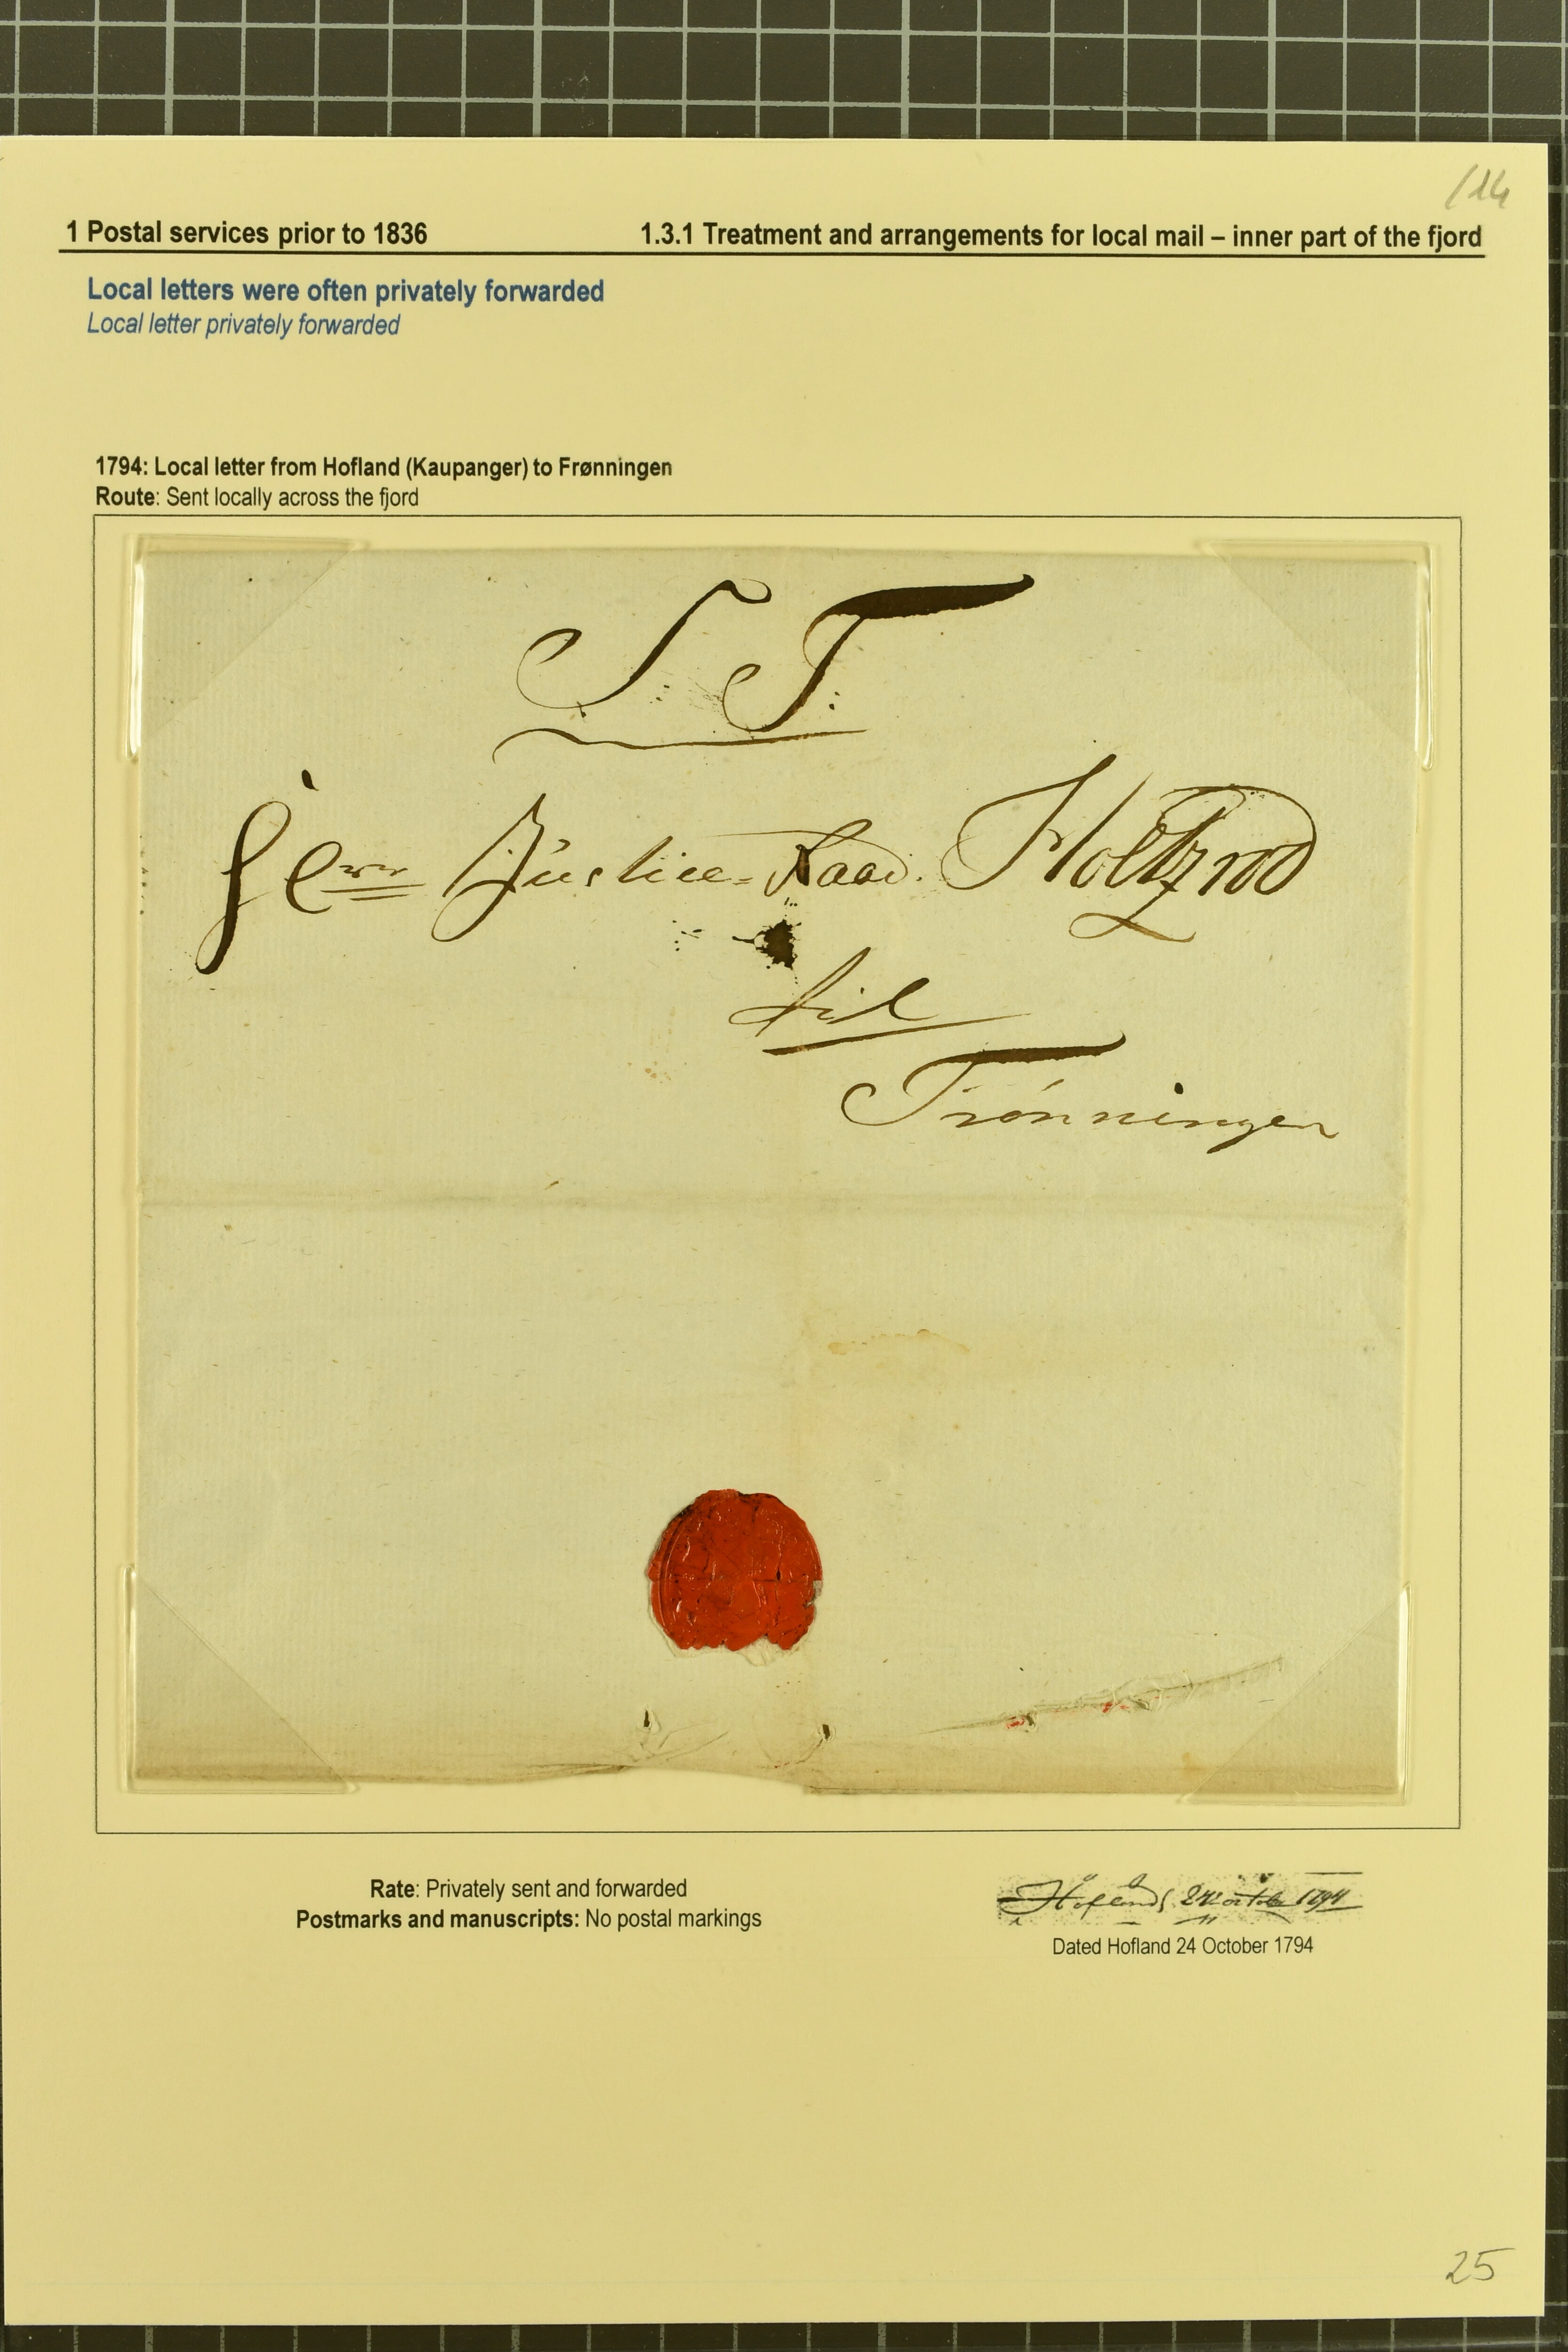 /14
1 Postal services prior to 1836
1.3.1 Treatment and arrangements for local mail – inner part of the fjord
Local letters were often privately forwarded
Local letter privately forwarded
1794: Local letter from Hofland (Kaupanger) to Frønningen
Route: Sent locally across the fjord
S: T:
Justice-Raad. Holtzrod
til
Frønningen
Rate: Privately sent and forwarded
Postmarks and manuscripts: No postal markings
Hofland 24 octobr 1794
Dated Hofland 24 October 1794
25